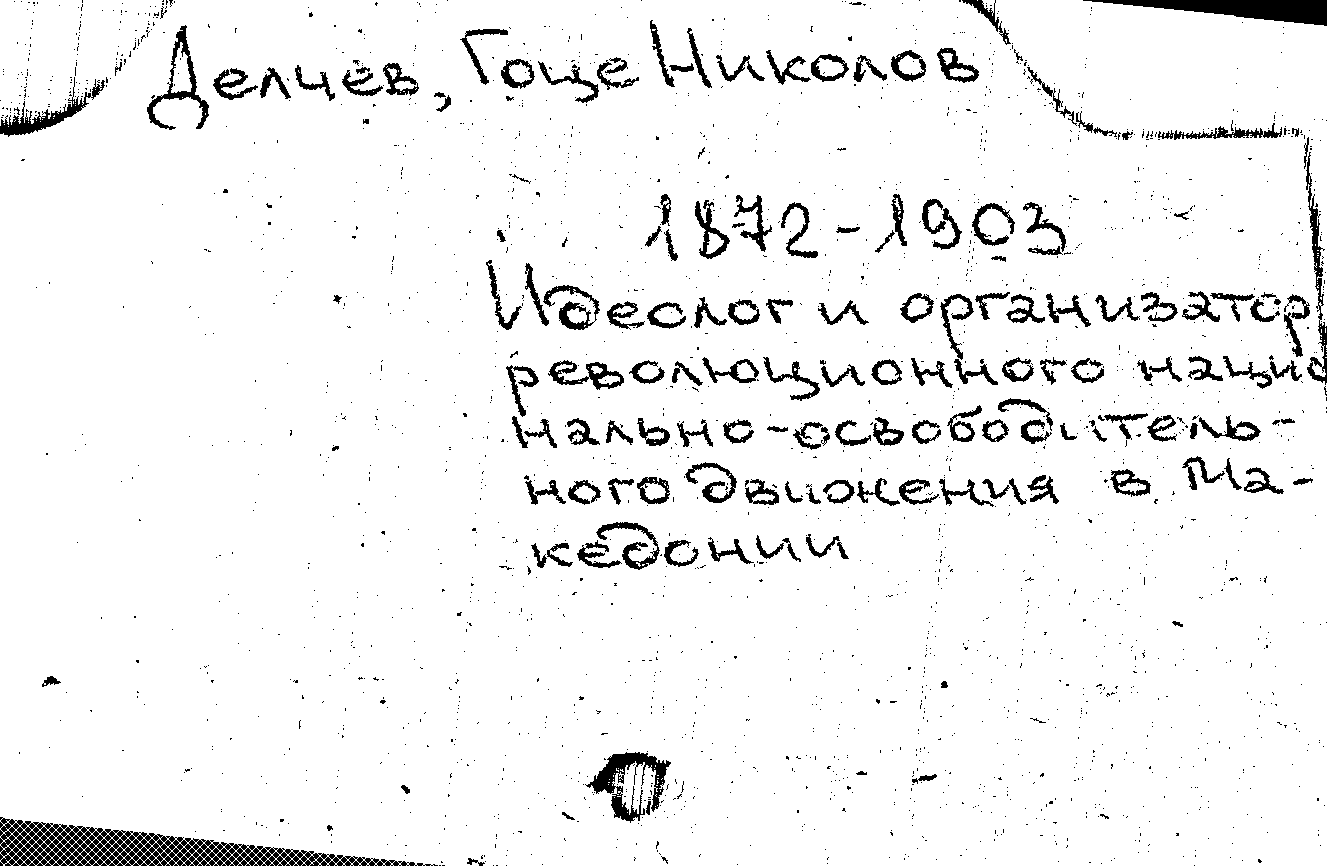 Делчев, Гоце Николов
1872-1903
Идеолог и организатор
революционного нацио
нально-освободитель-
ного движения в Ма-
кедонии